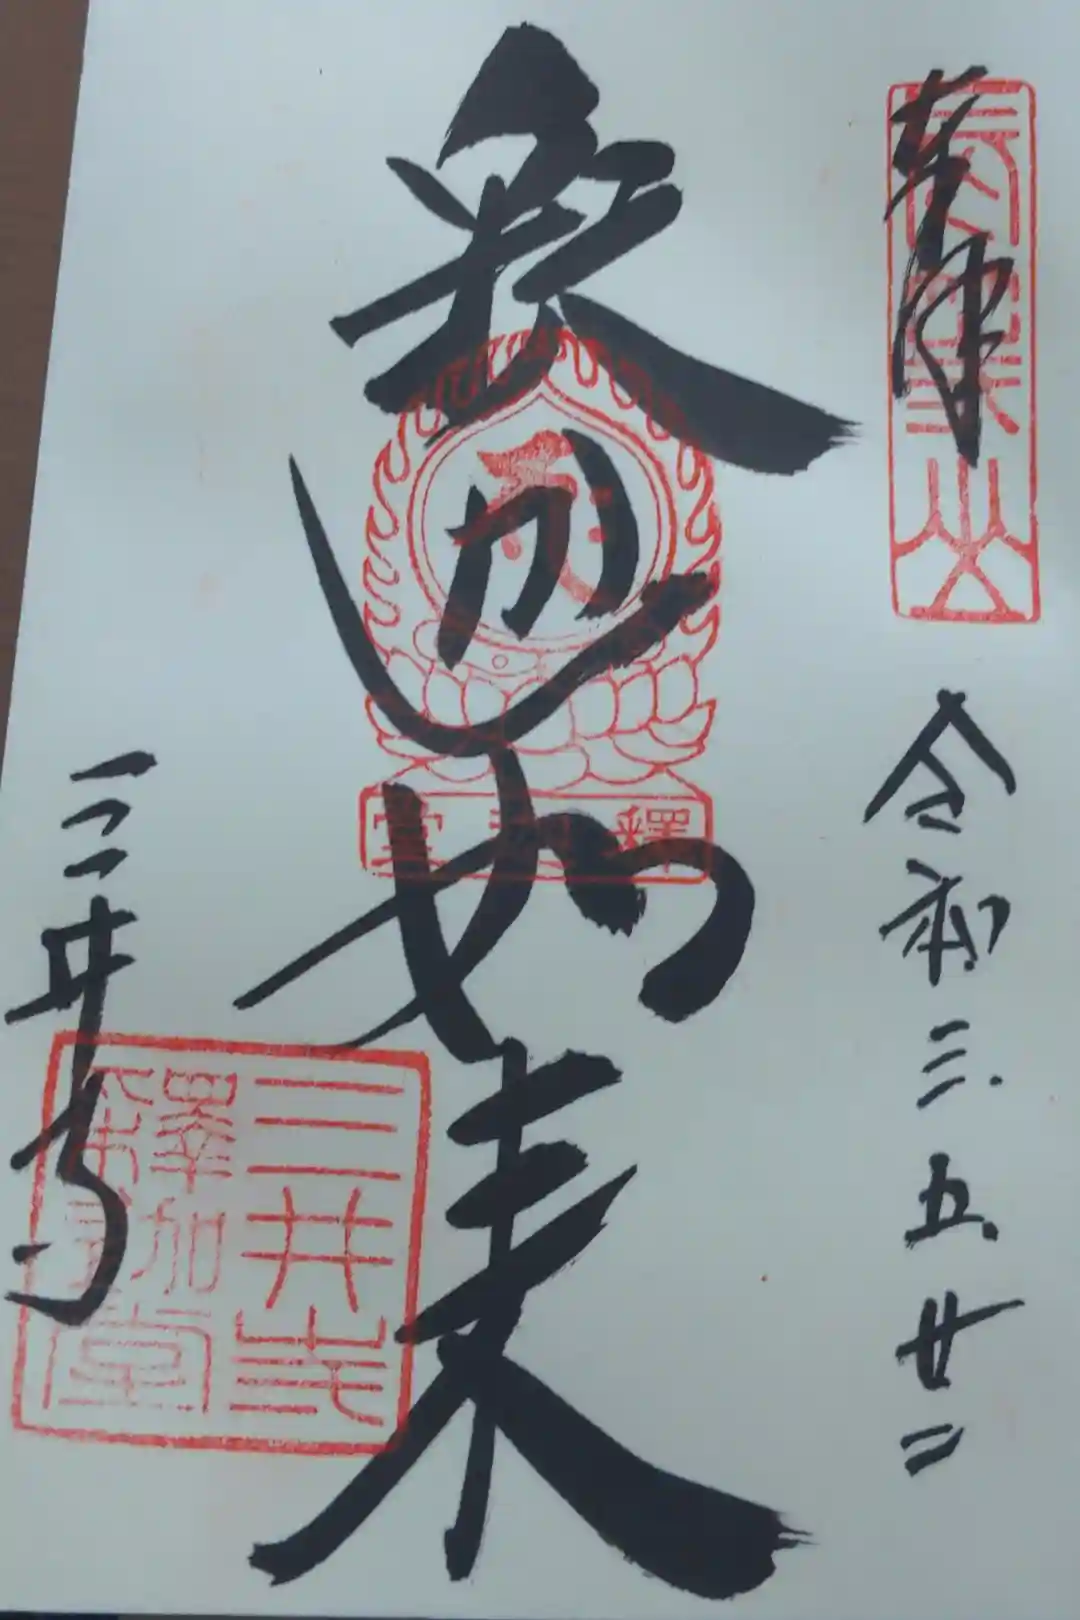 奉拝
長等山
令和三.五.廿二
釈迦如来
釋迦堂
三井寺
三井寺
釋迦堂